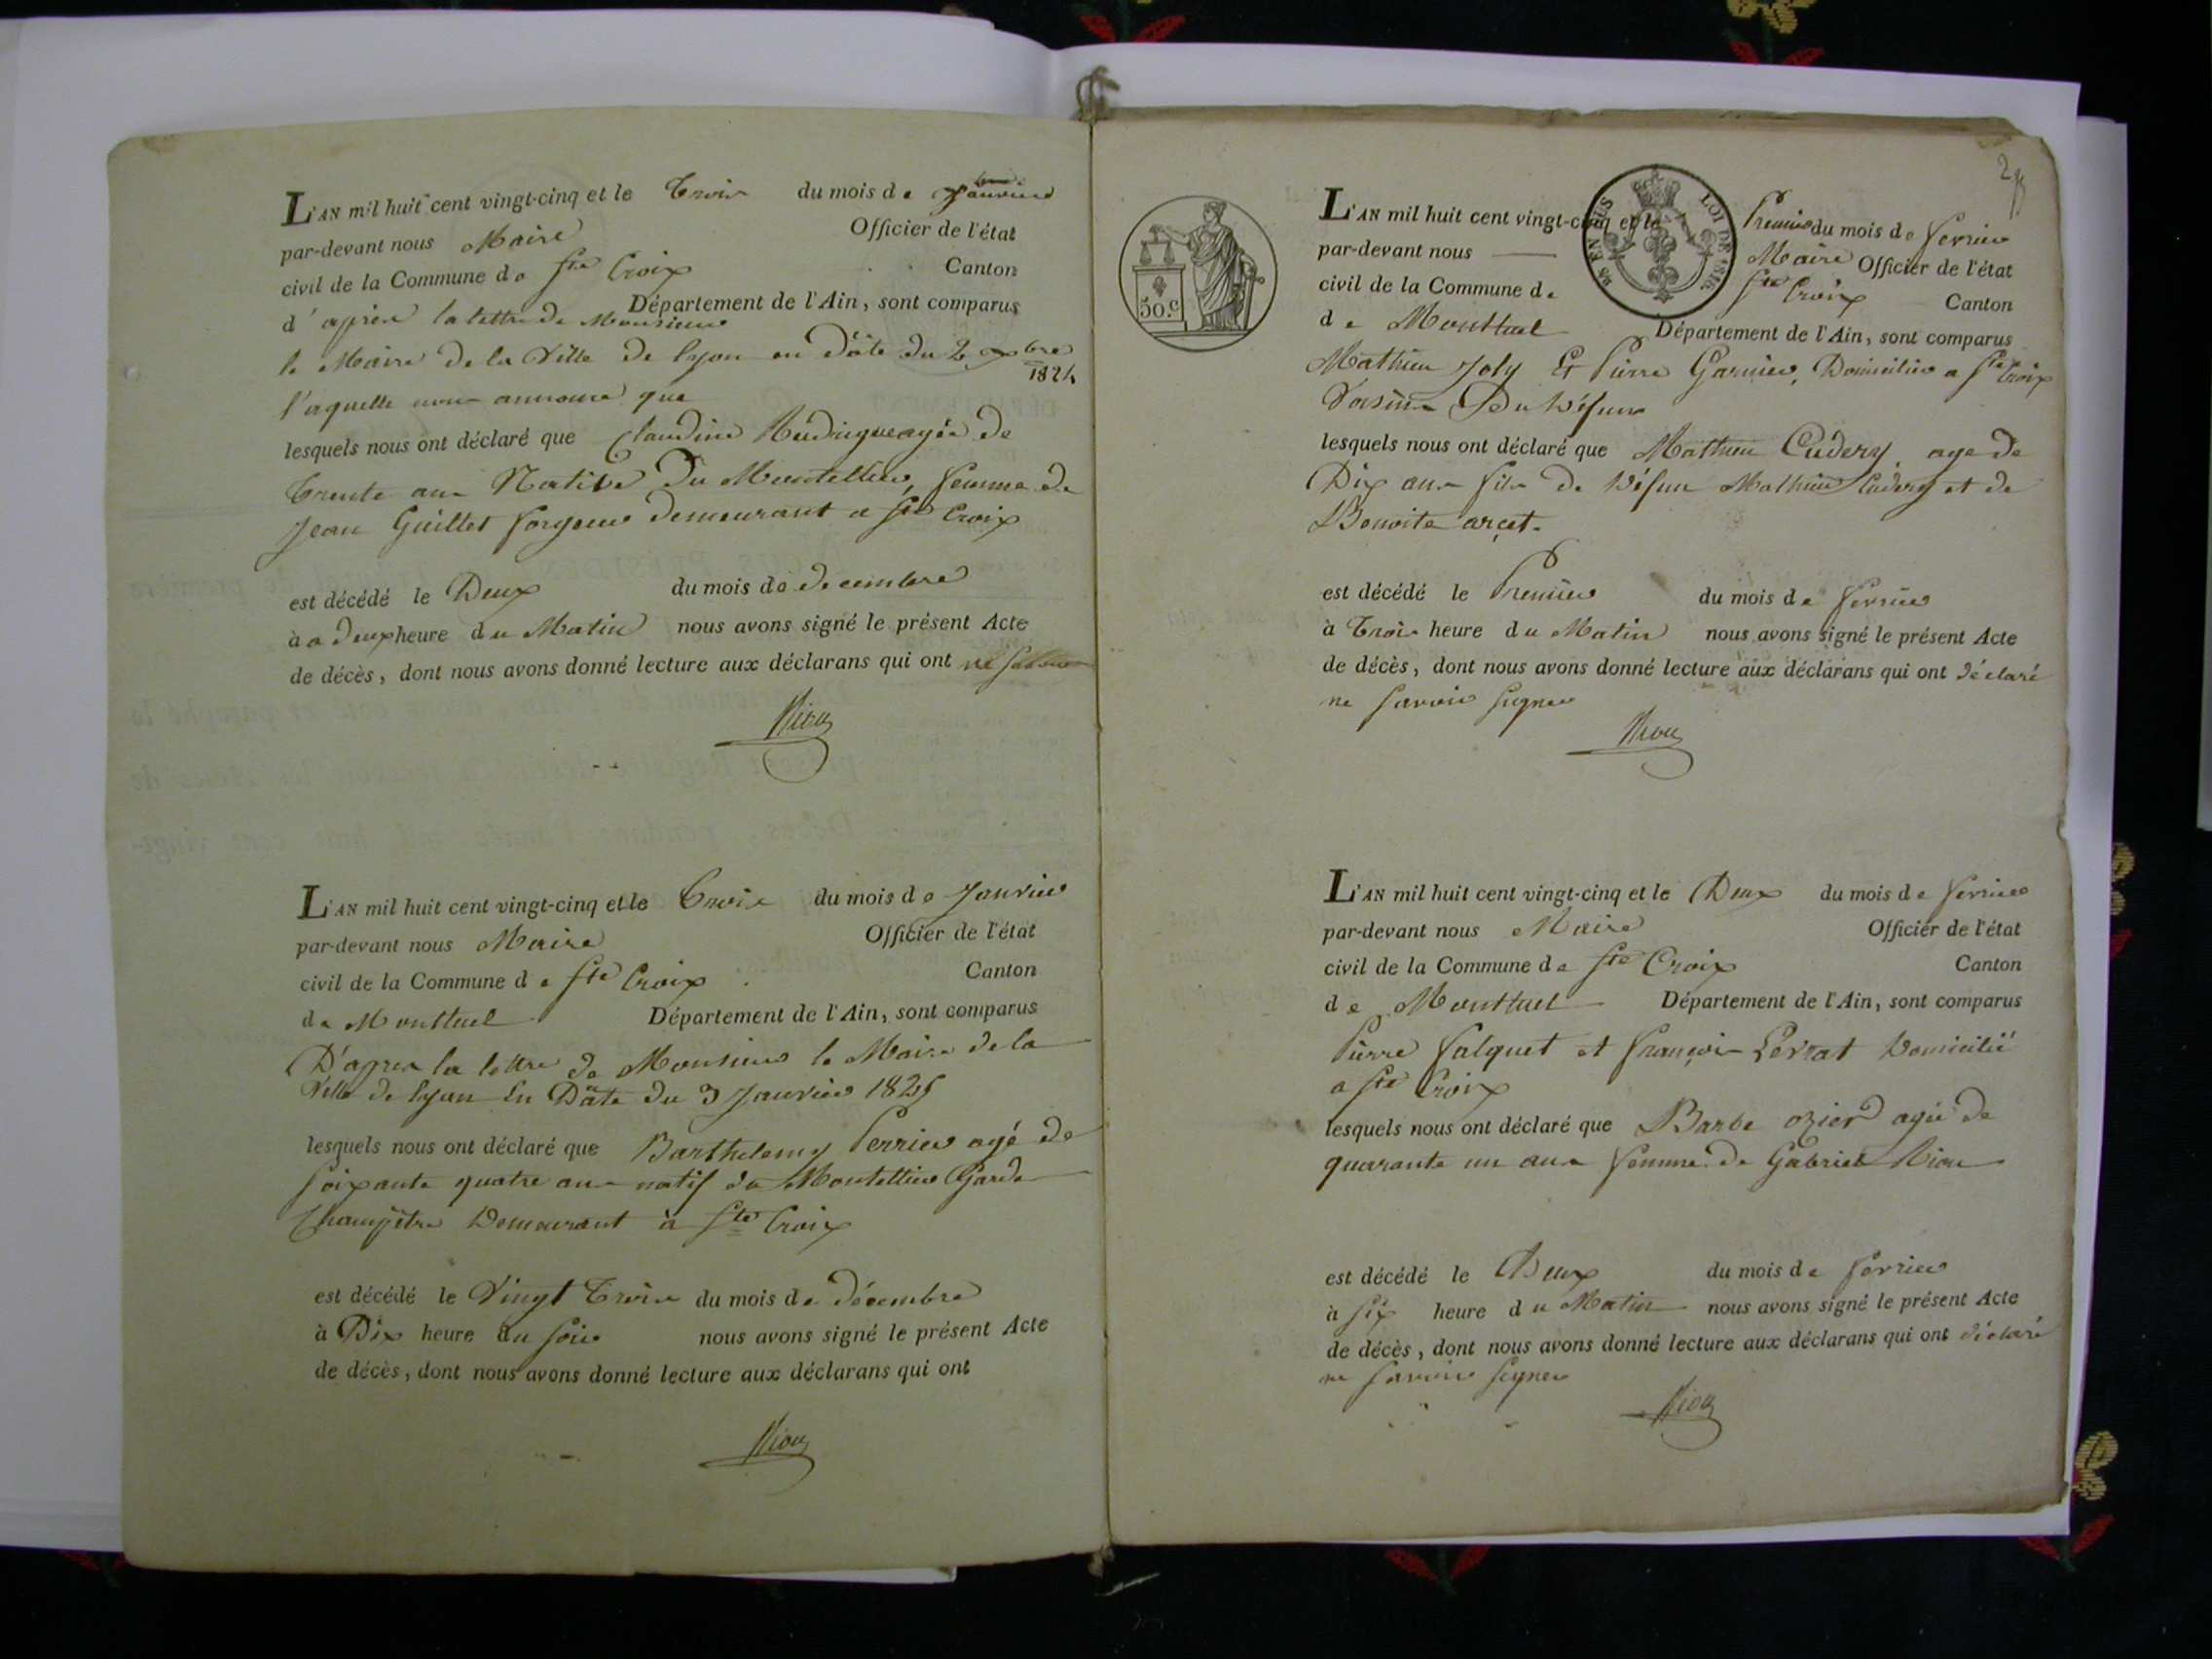 L'AN mil huit cent vingt-cinq et le Trois du mois de Janvier
par-devant nous Maire Officier de l'état
civil de la Commune de Ste Croix Canton
d'apres la lettre de Monsieur Département de l'Ain, sont comparus
le Maire de la Ville de Lyon en Date du 2 xbre
1824
l'aquelle nous annonce que
lesquels nous ont déclaré que Claudine agée de
Trente ans Native du Montellier, femme de
Jean Guillet forgeur demeurant a Ste Croix
est décédé le Deux du mois de decembre
à a deux heure du Matin nous avons signé le présent Acte
de décès, dont nous avons donné lecture aux déclarans qui ont
Niou
L'AN mil huit cent vingt-cinq et le Trois du mois de Janvier
par-devant nous Maire Officier de l'état
civil de la Commune de Ste Croix Canton
de Montluel Département de l'Ain, sont comparus
D'apres la lettre de Monsieur le Maire de la
Ville de Lyon En Date du 3 Janvier 1825
lesquels nous ont déclaré que Barthelemy Perrier agé de
soixante quatre ans natif du Montellier Garde
Champêtre Demeurant à Ste Croix
est décédé le Vingt Trois du mois de décembre
à Dix heure du soir nous avons signé le présent Acte
de décès, dont nous avons donné lecture aux déclarans qui ont
Niou
2
50.C
SUS EN LOI DE 1816.
L'AN mil huit cent vingt-cinq et le Premier du mois de fevrier
par-devant nous Maire Officier de l'état
civil de la Commune de Ste Croix Canton
de Montluel Département de l'Ain, sont comparus
Mathieu Joly Et Pierre Garnier, Domicilier a Ste Croix
Voisins Du Défunt
lesquels nous ont déclaré que Mathieu Cudery age de
Dix ans fils de Défun Mathieu Cudery et de
Benoite arçet.
est décédé le Premier du mois de fevrier
à Trois heure du Matin nous avons signé le présent Acte
de décès, dont nous avons donné lecture aux déclarans qui ont déclaré
ne savoir signer
Niou
L'AN mil huit cent vingt-cinq et le Deux du mois de fevrier
par-devant nous Maire Officier de l'état
civil de la Commune de Ste Croix Canton
de Montluel Département de l'Ain, sont comparus
Pierre falquet et françois Perrat Domicilié
a Ste Croix
lesquels nous ont déclaré que Barbe ozier agée de
quarante un ans femme de Gabriel Niou
est décédé le Deux du mois de fevrier
à six heure du Matin nous avons signé le présent Acte
de décès, dont nous avons donné lecture aux déclarans qui ont déclaré
ne savoir signer
Niou